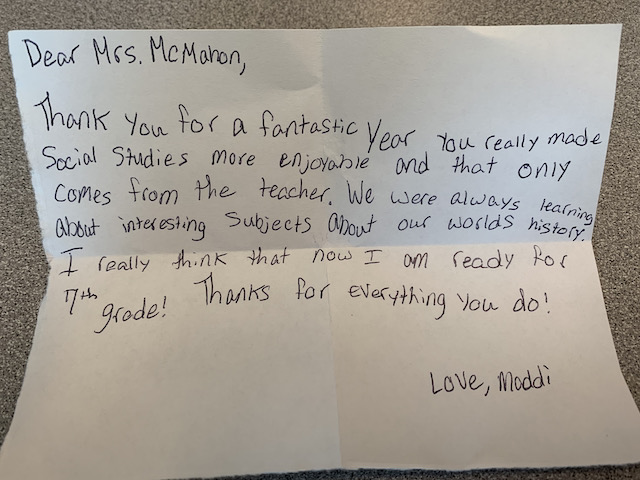 Dear Mrs. McMahon,
Thank you for a fantastic year you really made
Social Studies more enjoyable and that only
comes from the teacher. We were always learning
about interesting subjects about our worlds history.
I really think that now I am ready for
7th grade! Thanks for everything you do!
Love, Maddi